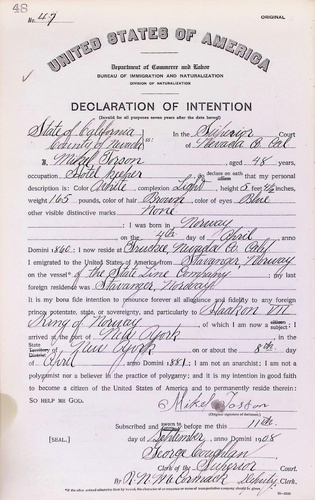 48
No. 47 ORIGINAL
UNITED STATES OF AMERICA
Department of Commerce and Labor
BUREAU OF IMMIGRATION AND NATURALIZATION
DIVISION OF NATURALIZATION
DECLARATION OF INTENTION
(Invalid for all purposes seven years after the date hereof)
State of California In the Superior Court
County of Nevada ss: of Nevada Co. Cal
I, Mikal Torson, aged 48 years,
occupation Hotel keeper, do declare on oath that my personal
description is: Color White, complexion Light, height 5 feet inches,
weight 165 pounds, color of hair Brown, color of eyes Blue
other visible distinctive marks None
; I was born in Norway
on the 4th day of April, anno
Domini 1860; I now reside at Truckee, Nevada Co. Cal
I emigrated to the United States of America from Stavanger, Norway
on the vessel of the State Line Company; my last
foreign residence was Stavanger, Norway.
It is my bona fide intention to renounce forever all allegiance and fidelity to any foreign
prince, potentate, state, or sovereignty, and particularly to Haakon VII
King of Norway, of which I am now a subject; I
arrived at the port of New York, in the
State Territory District of New York on or about the 8th day
of April, anno Domini 1881; I am not an anarchist; I am not a
polygamist nor a believer in the practice of polygamy; and it is my intention in good faith
to become a citizen of the United States of America and to permanently reside therein:
SO HELP ME GOD.
Mikal
(Original signature of declarant.)
Subscribed and sworn to before me this 11th
[SEAL.] day of September, anno Domini 1908
George Coughlan
Clerk of the Superior Court.
By Deputy Clerk.